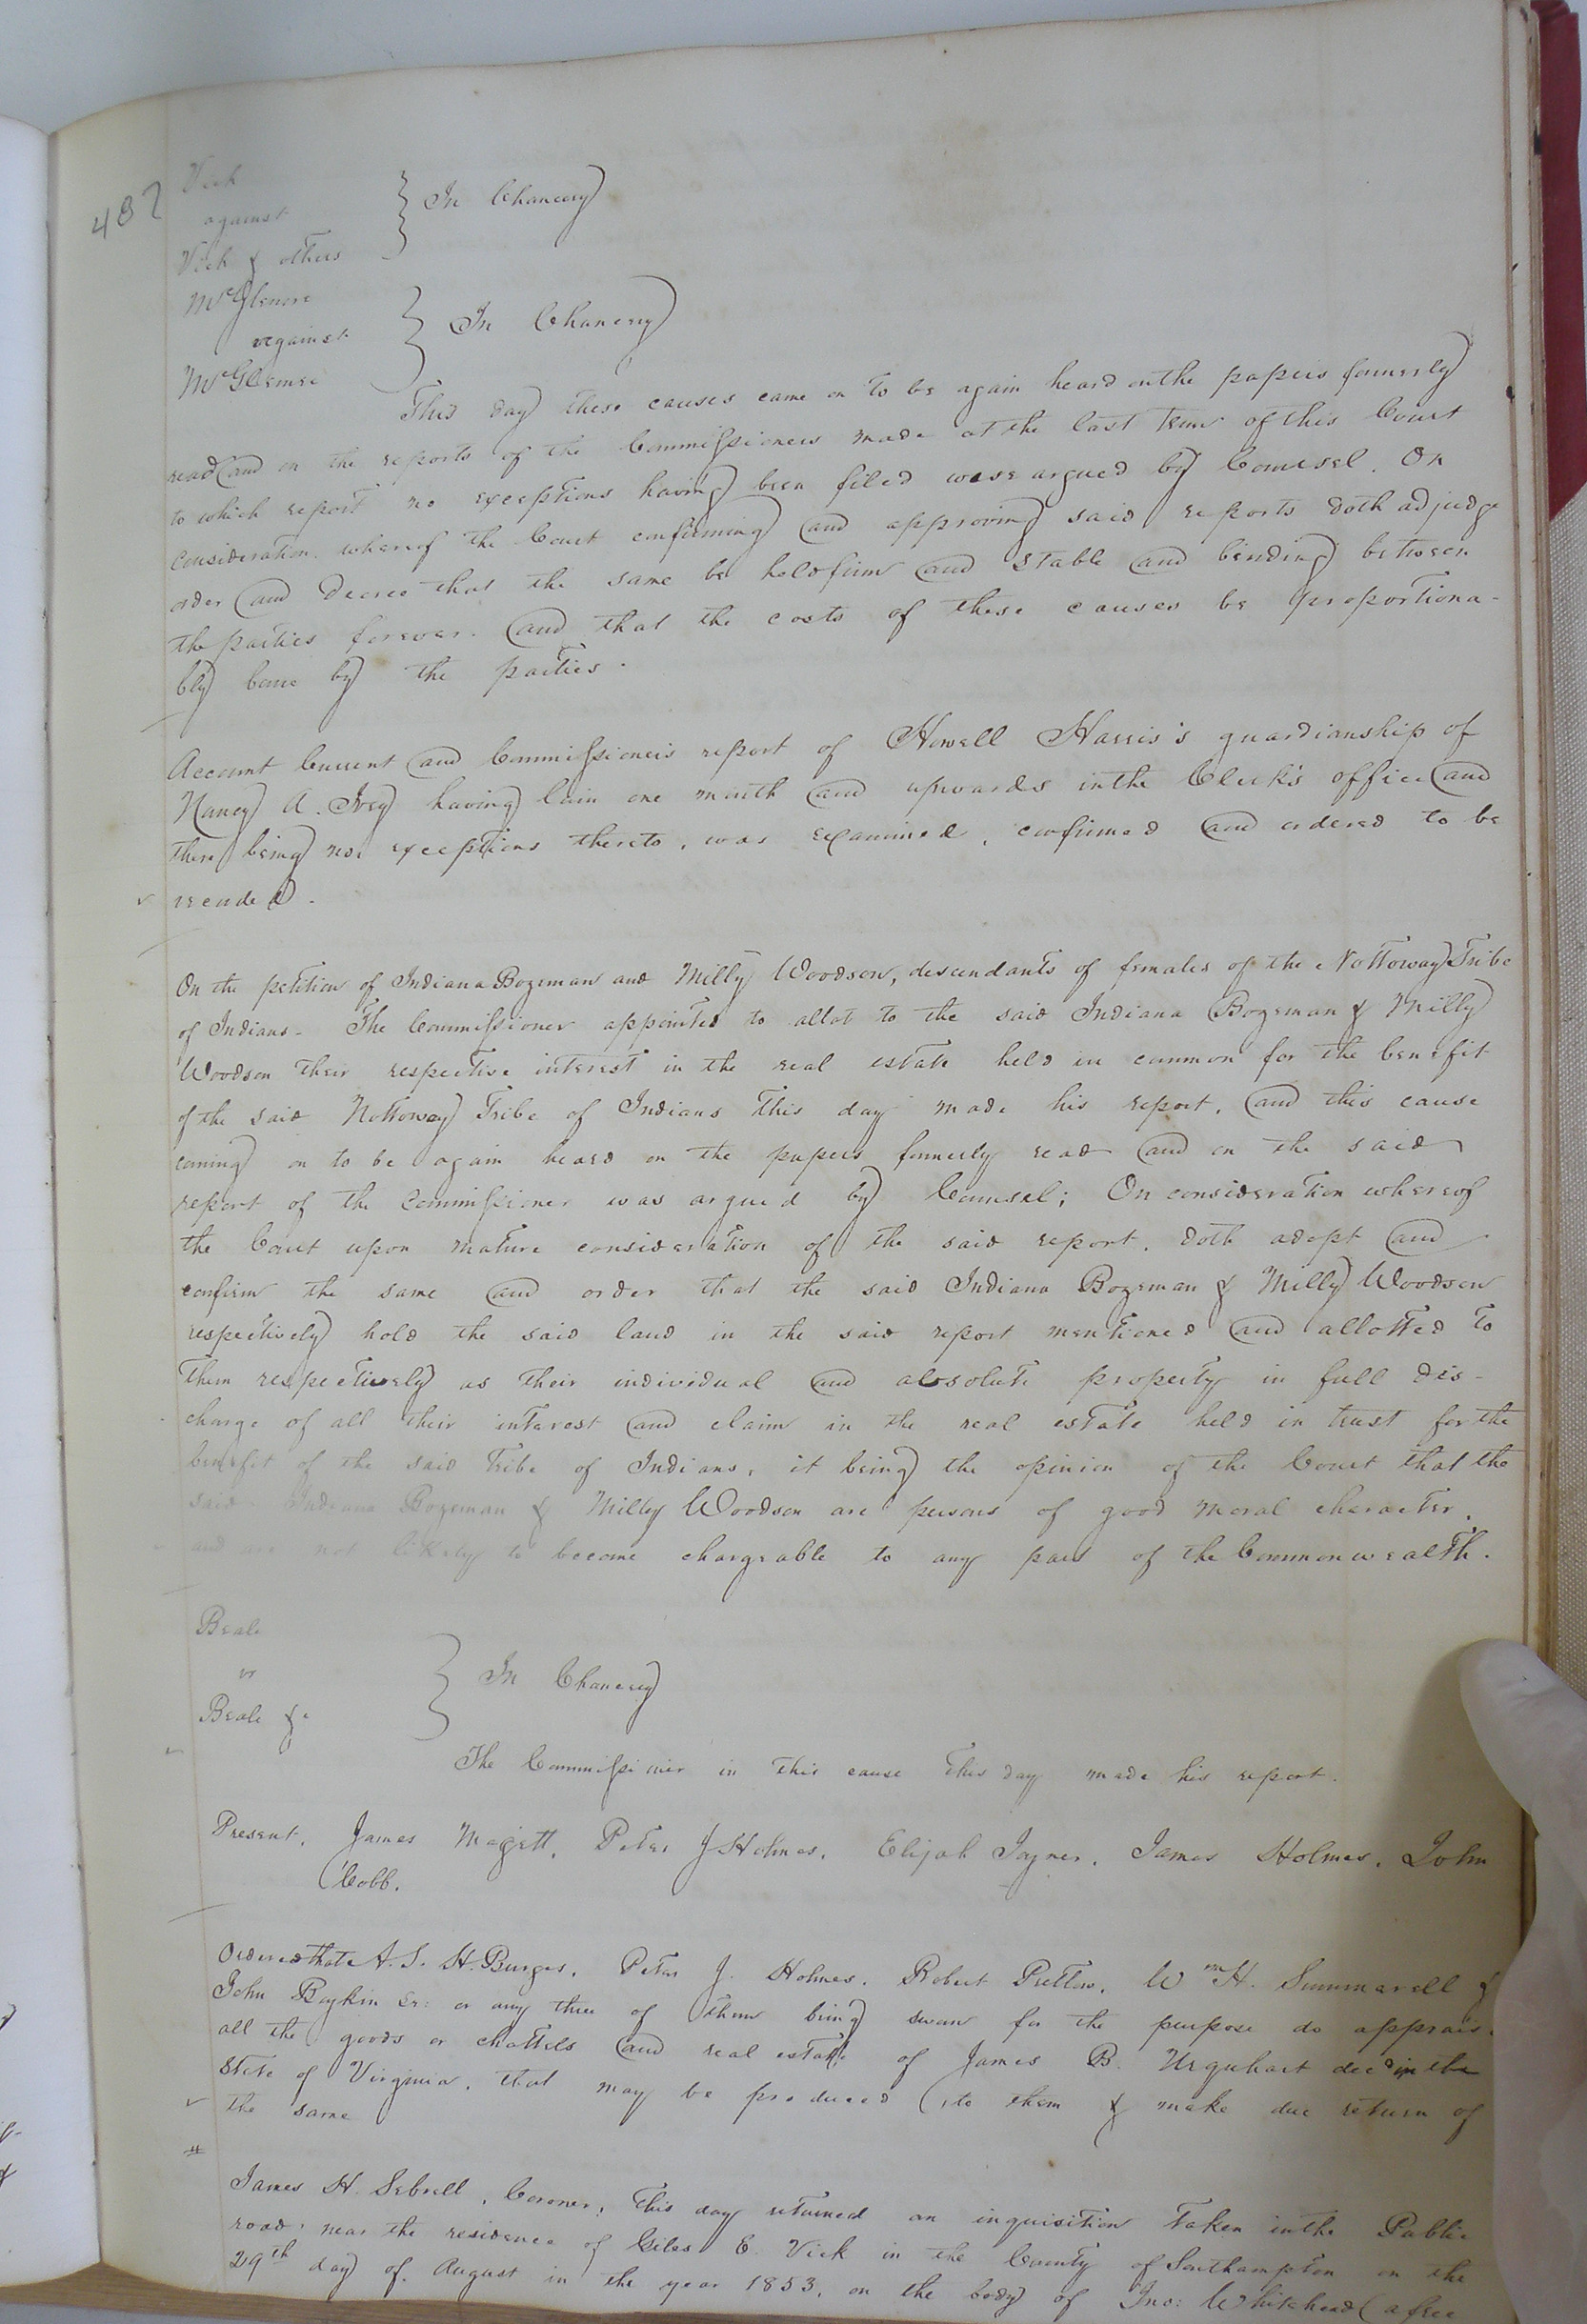 487
Vick
against
Vick & others
In Chancery
McGlemre
against
McGlemre
In Chancery
This day these causes came on to be again heard on the papers formerly
read and on the reports of the Commissioners made at the last term of this Court
to which report no exceptions having been filed were argued by Counsel. On
consideration whereof the Court confirming and approving said reports doth adjudge
order and decree that the same be held firm and stable and binding between
the parties forever. and that the costs of these causes be proportiona-
bly borne by the parties.
Account Current and Commissioners report of Howell Harris's guardianship of
Nancy A. Ivey having lain one month and upwards in the Clerk's office and
there being no exceptions thereto, was examined, confirmed and ordered to be
recorded.
On the petition of Indiana Bozeman and Milly Woodson, descendants of females of the Nottoway Tribe
of Indians - The Commissioner appointed to allot to the said Indiana Bozeman & Milly
Woodson their respective interest in the real estate held in common for the benefit
of the said Nottoway Tribe of Indians this day made his report, and this cause
coming on to be again heard on the papers formerly read and on the said
report of the Commissioner was argued by Counsel; On consideration whereof
the Court upon mature consideration of the said report, doth adopt and
confirm the same and order that the said Indiana Bozeman & Milly Woodson
respectively hold the said land in the said report mentioned and allotted to
them respectively as their individual and absolute property in full dis-
charge of all their interest and claim in the real estate held in trust for the
benefit of the said Tribe of Indians, it being the opinion of the Court that the
said Indiana Bozeman & Milly Woodson are persons of good moral character,
and are not likely to become chargeable to any part of the Commonwealth.
Beale
vs
Beale &c
In Chancery
The Commissioner in this cause this day made his report.
Present, James Magett, Peter J Holmes, Elijah Joyner, James Holmes, John
Cobb.
Ordered that A. S. H. Burges, Peter J. Holmes, Robert Pretlow, Wm H. Summarell &
John Boykin Sr: or any three of them being sworn for the purpose do appraise
all the goods or chattels and real estate of James B. Urquhart decd in the
State of Virginia, that may be produced to them & make due return of
the same
James H. Sebrell, Coroner, this day returned an inquisition taken in the Public
road near the residence of Giles E. Vick in the County of Southampton on the
29th day of August in the year 1853, on the body of Jno: Whitehead (a free